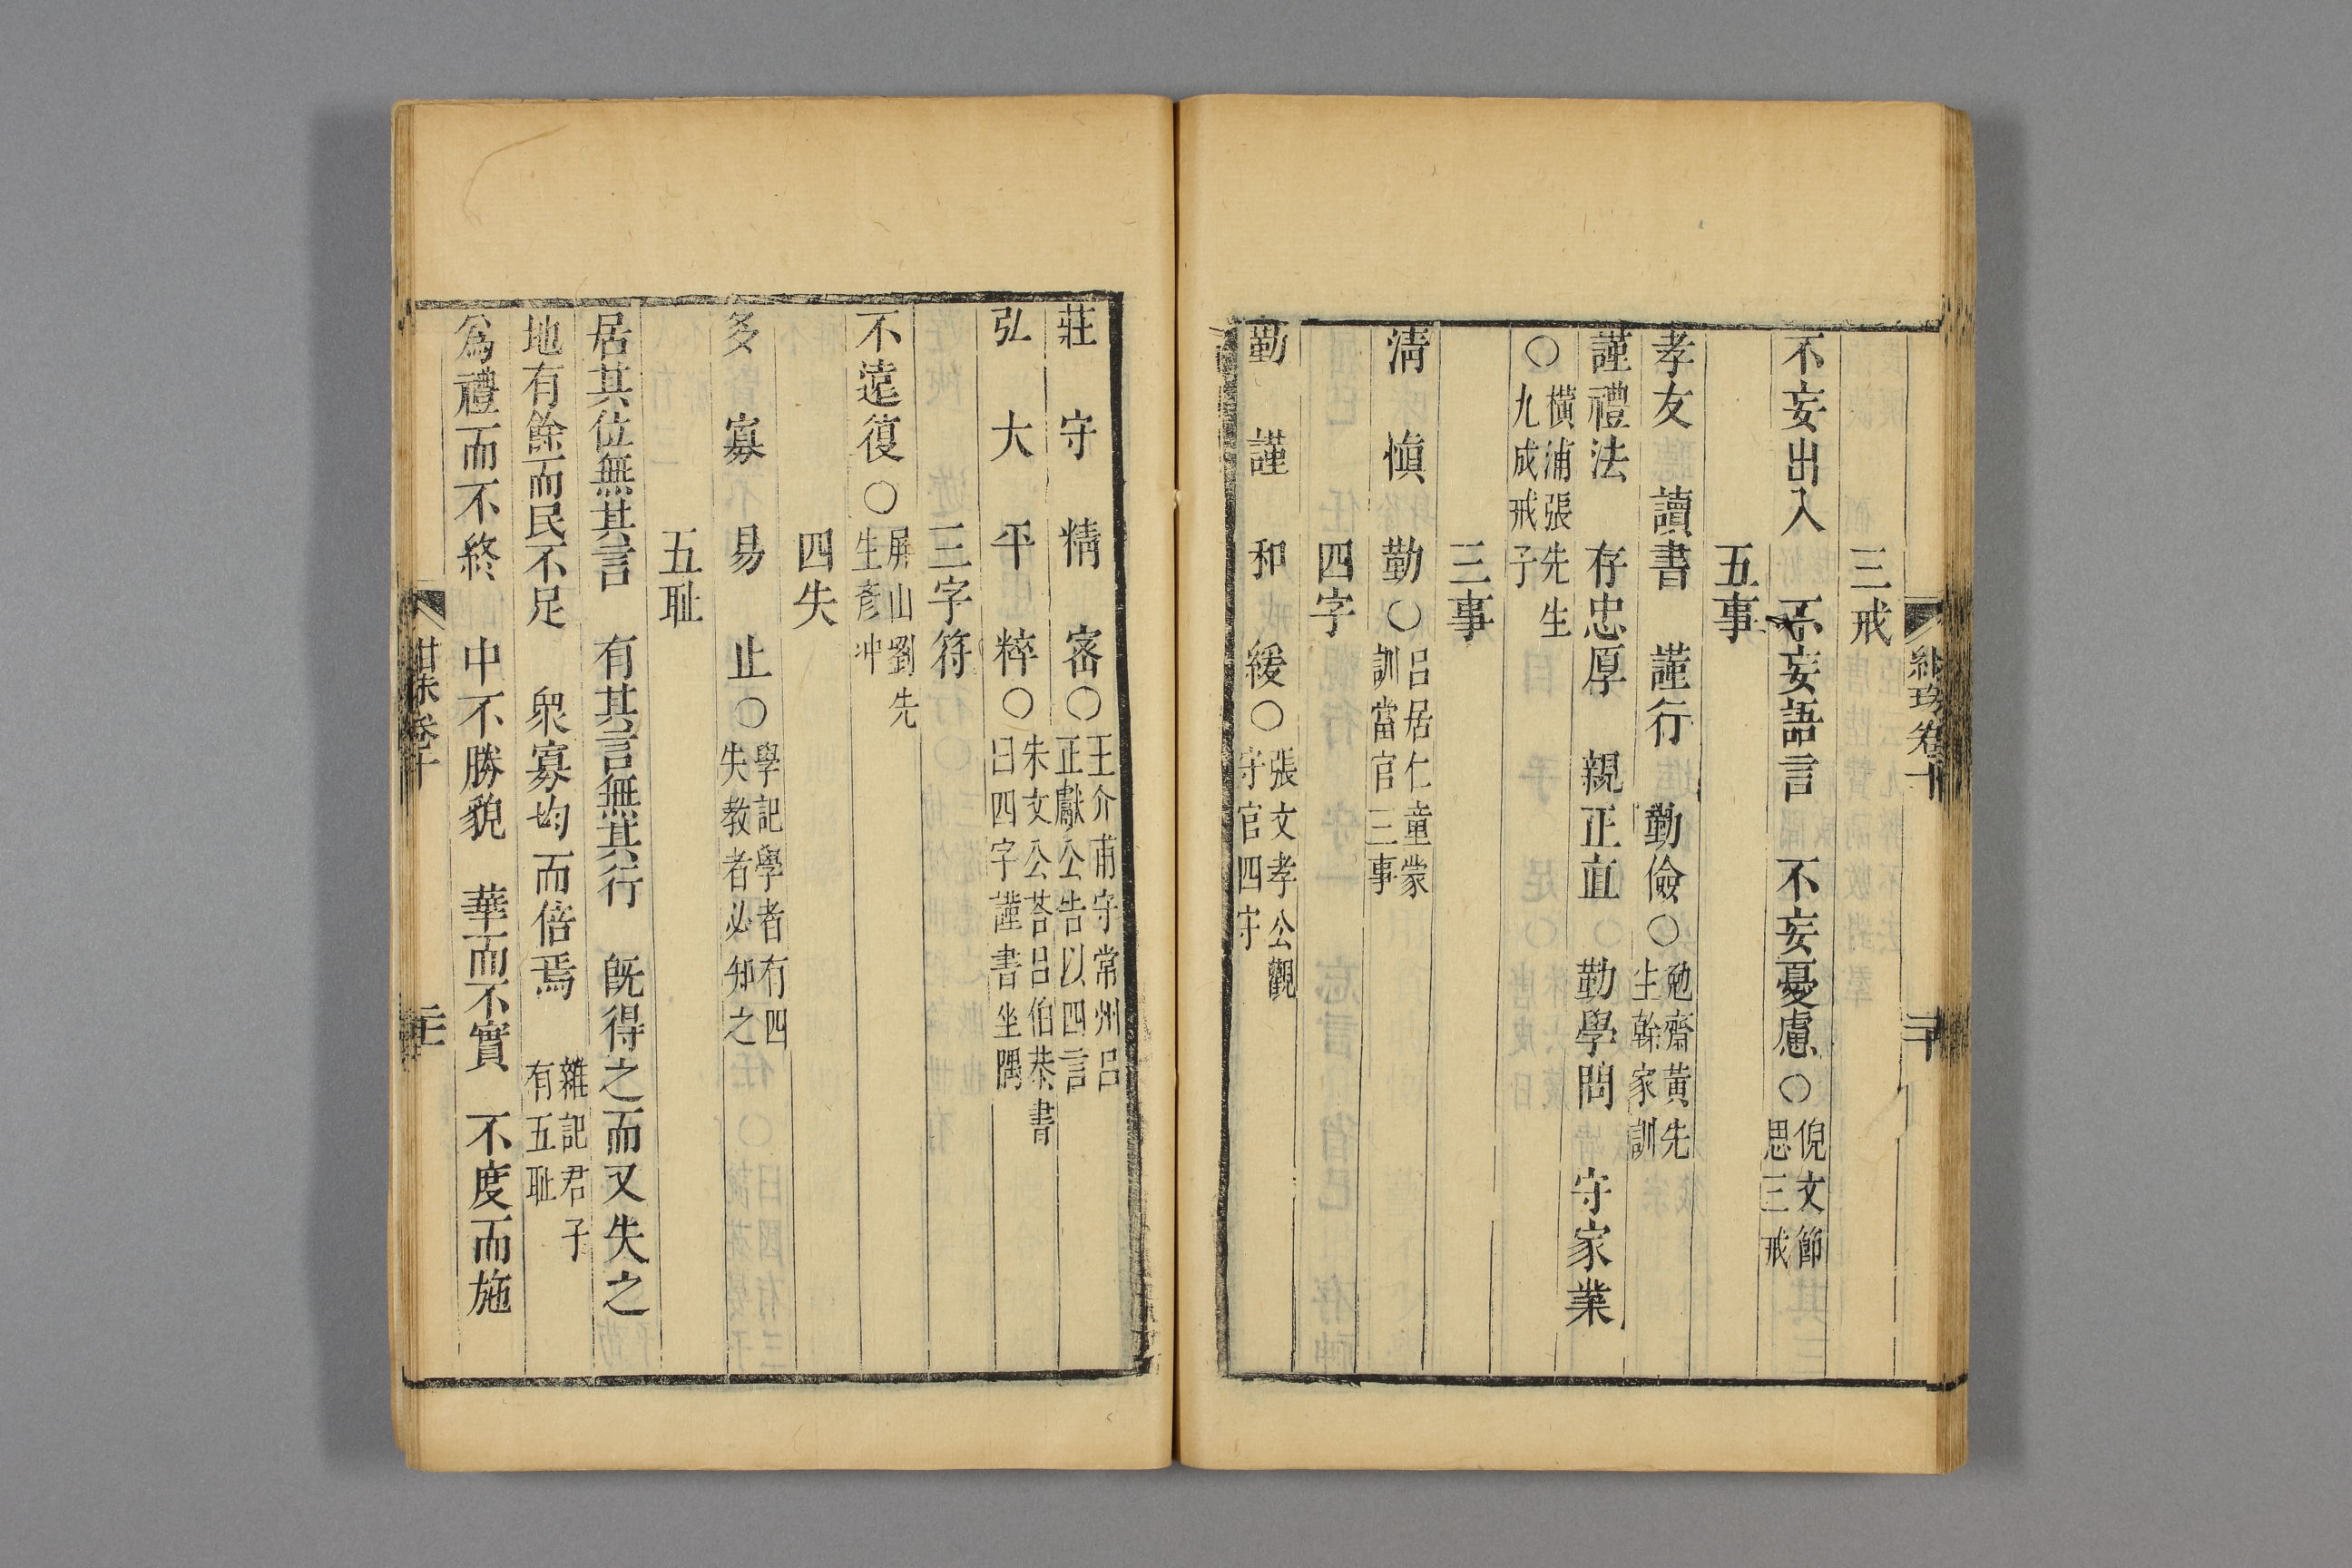 紺珠卷十
三戒
不妄出入　不妄語言　不妄憂慮○倪文節思三戒
五事
孝友　讀書　謹行　勤儉○勉齋黃先生榦家訓
謹禮法　存忠厚　親正直　勤學問　守家業
○橫浦張先生九成戒子
三事
清　愼　勤○呂居仁童蒙訓當官三事
四字
勤　謹　和　緩○張文孝公觀守官四字
莊　守　精　密○王介甫守常州呂正獻公告以四言
弘　大　平　粹○朱文公荅呂伯恭書曰四字謹書坐隅
三字符
不遠復○屏山劉先生彥冲
四失
多　寡　易　止○學記學者有四失教者必知之
五耻
居其位無其言　有其言無其行　旣得之而又失之
地有餘而民不足　衆寡均而倍焉　雜記君子有五耻
爲禮而不終　中不勝貌　華而不實　不度而施
紺珠卷十